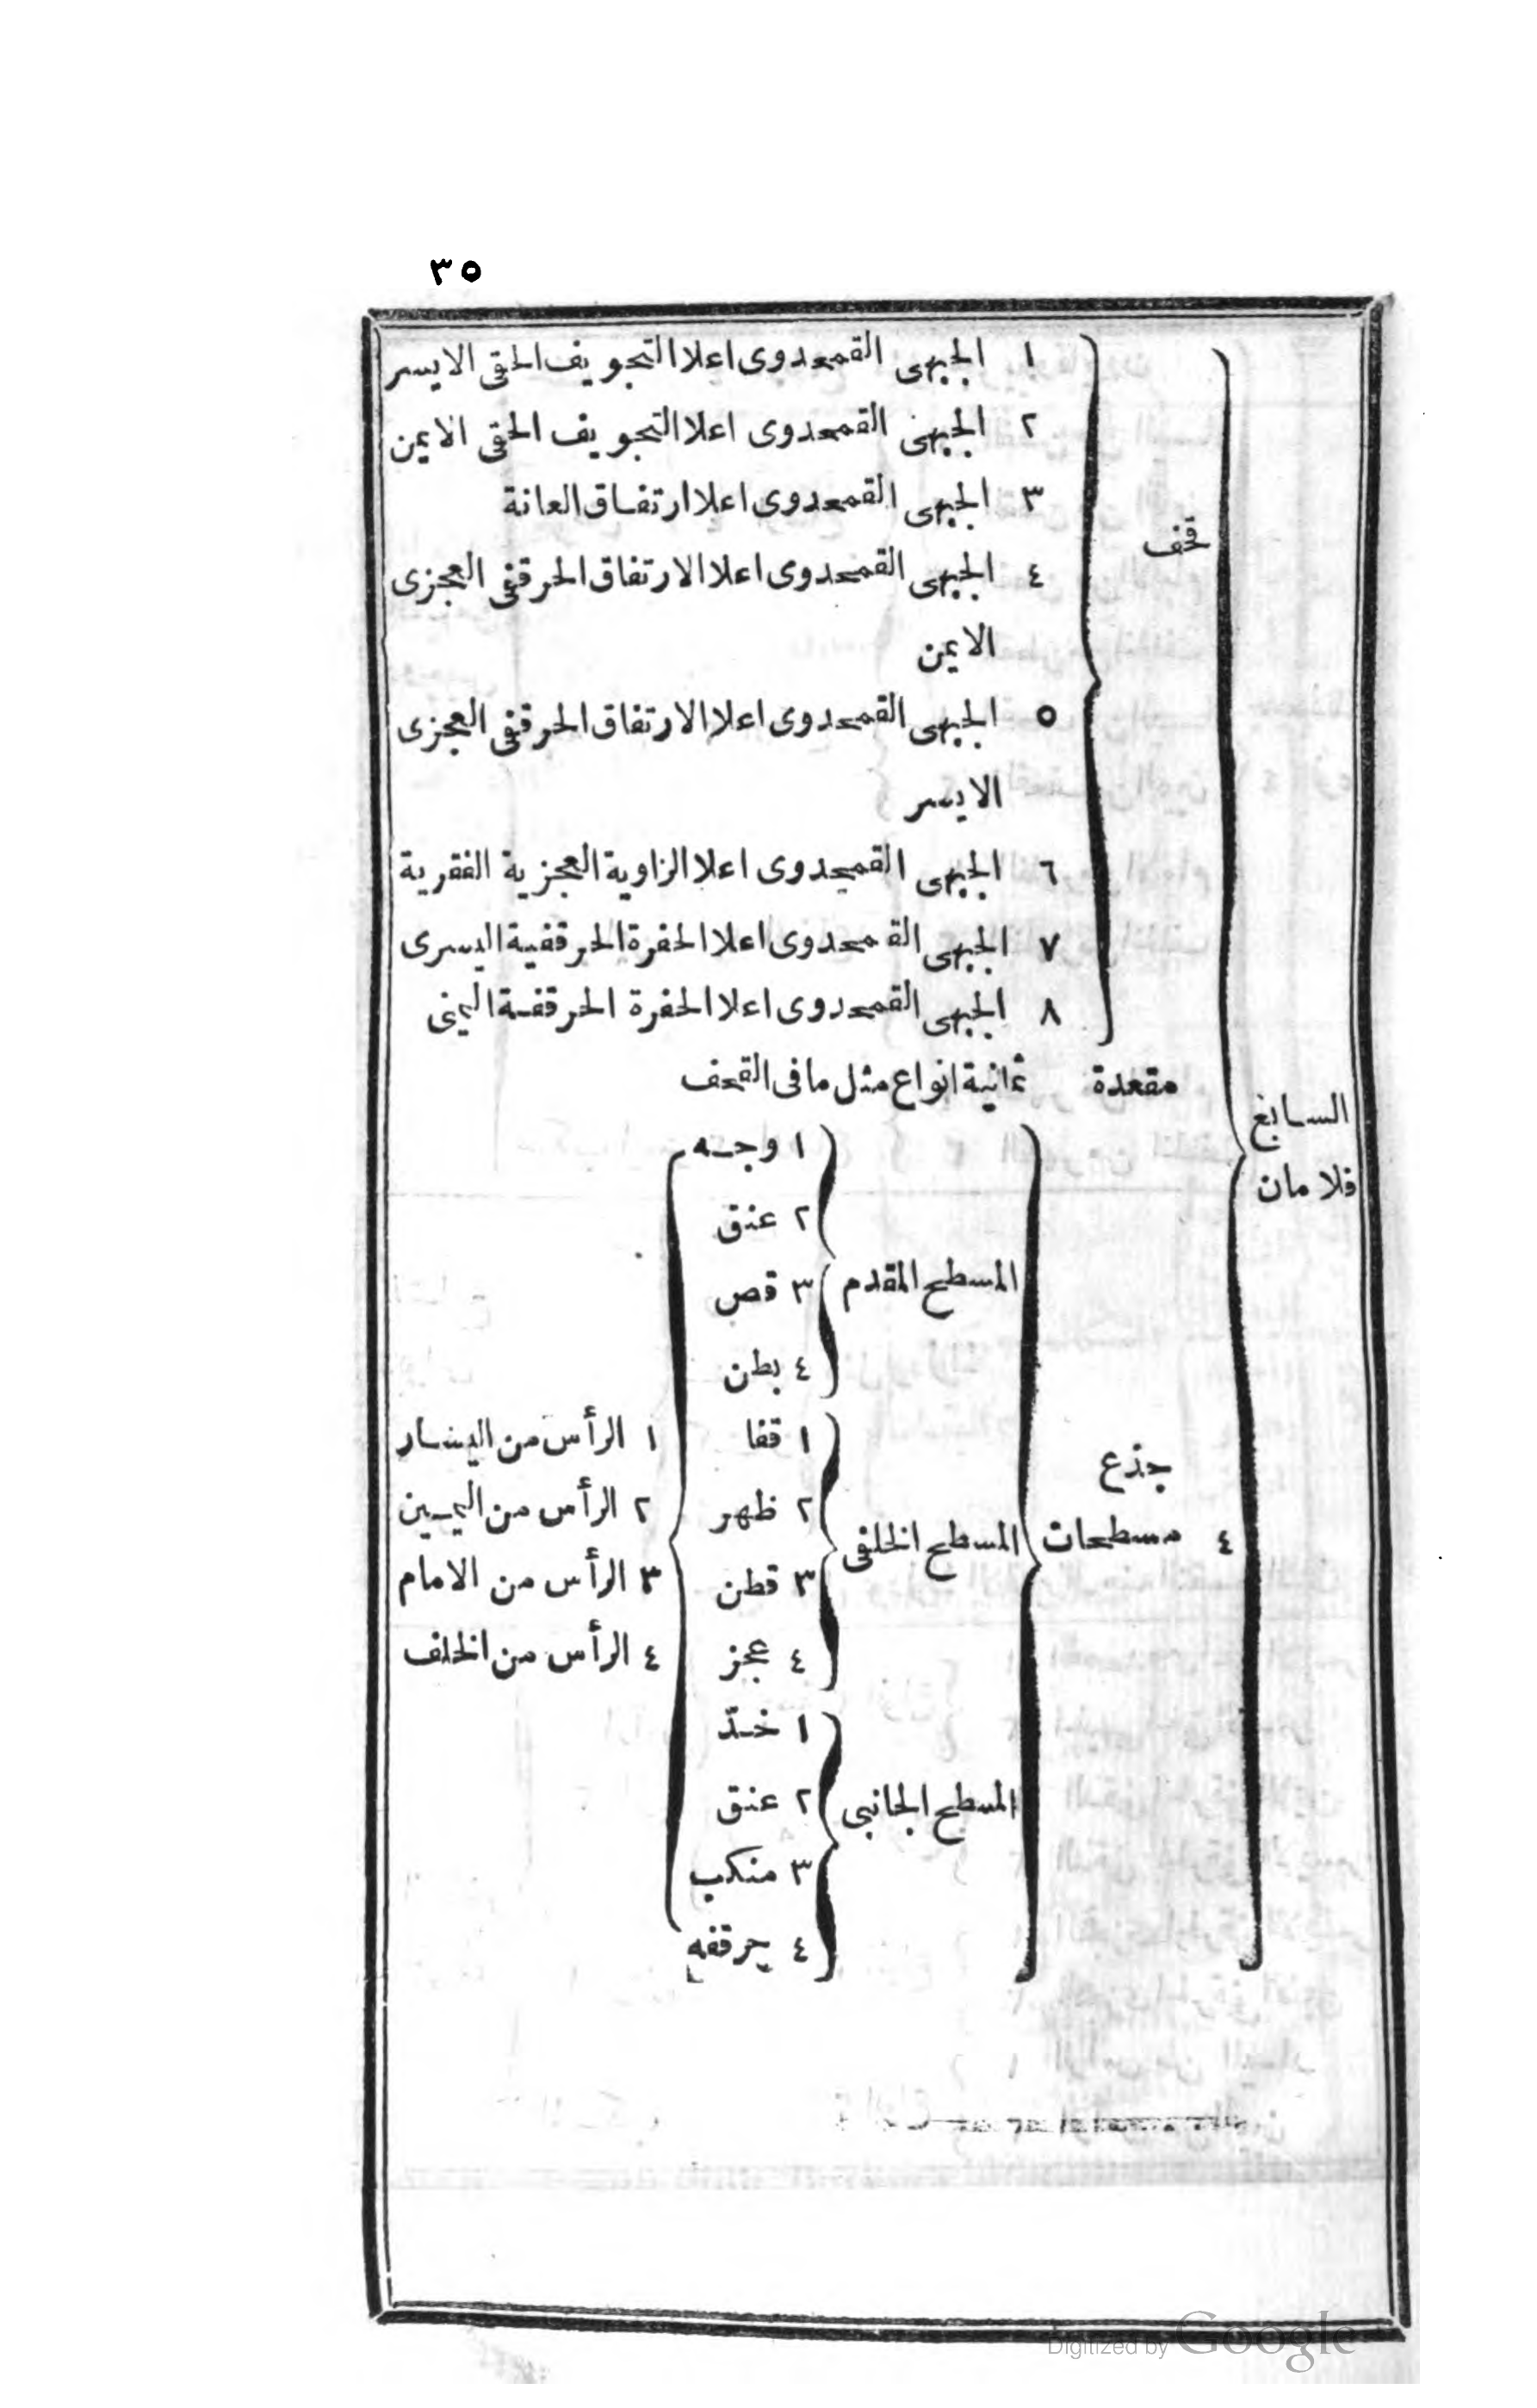 ٣٥
السابع
فلامان
قحف
١ الجبهى القمحدوى اعلا التجويف الحقى الايسر
٢ الجبهى القمحدوى اعلا التجويف الحقى الايمن
٣ الجبهى القمحدوى اعلا ارتفاق العانة
٤ الجبهى القمحدوى اعلا الارتفاق الحرقفى العجزى
الايمن
٥ الجبهى القمحدوى اعلا الارتفاق الحرقفى العجزى
الايسر
٦ الجبهى القمحدوى اعلا الزاوية العجزية الفقرية
٧ الجبهى القمحدوى اعلا الحفرة الحرقفية اليسرى
٨ الجبهى القمحدوى اعلا الحفرة الحرقفية اليمنى
مقعدة ثمانية انواع مثل ما فى القحف
جذع
٤ مسطحات
المسطح المقدم
١ وجه
٢ عنق
٣ قص
٤ بطن
المسطح الخلفى
١ قفا
٢ ظهر
٣ قطن
٤ عجز
المسطح الجانبى
١ خدّ
٢ عنق
٣ منكب
٤ حرقفه
١ الرأس من اليسار
٢ الرأس من اليمين
٣ الرأس من الامام
٤ الرأس من الخلف
Digitized by Google